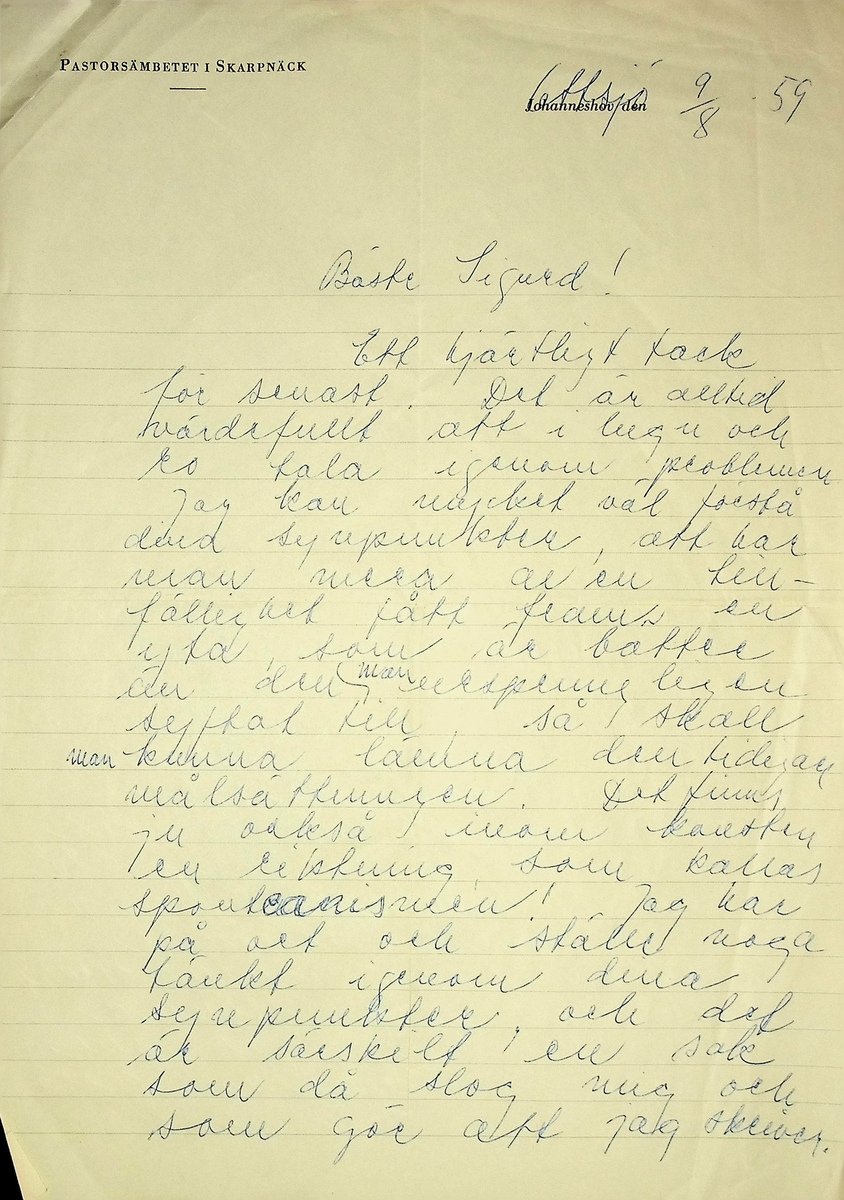 PASTORSÄMBETET I SKARPNÄCK
Johanneshov den 9/8 - 59
Bäste Sigurd!
Ett hjärtligt tack
för senast. Det är alltid
värdefullt att i lugn och
ro tala igenom problemen
Jag kan mycket väl förstå
dina synpunkter, att har
man mera av en till-
fällighet fått fram en
yta, som är bättre
än den man ursprungligen
syftat till, så skall
man kunna lämna den tidigare
målsättningen. Det finns
ju också inom konsten
en riktning, som kallas
spontanismen! Jag har
på ort och ställe noga
tänkt igenom dina
synpunkter, och det
är särskilt en sak
som då slog mig och
som gör att jag skriver.